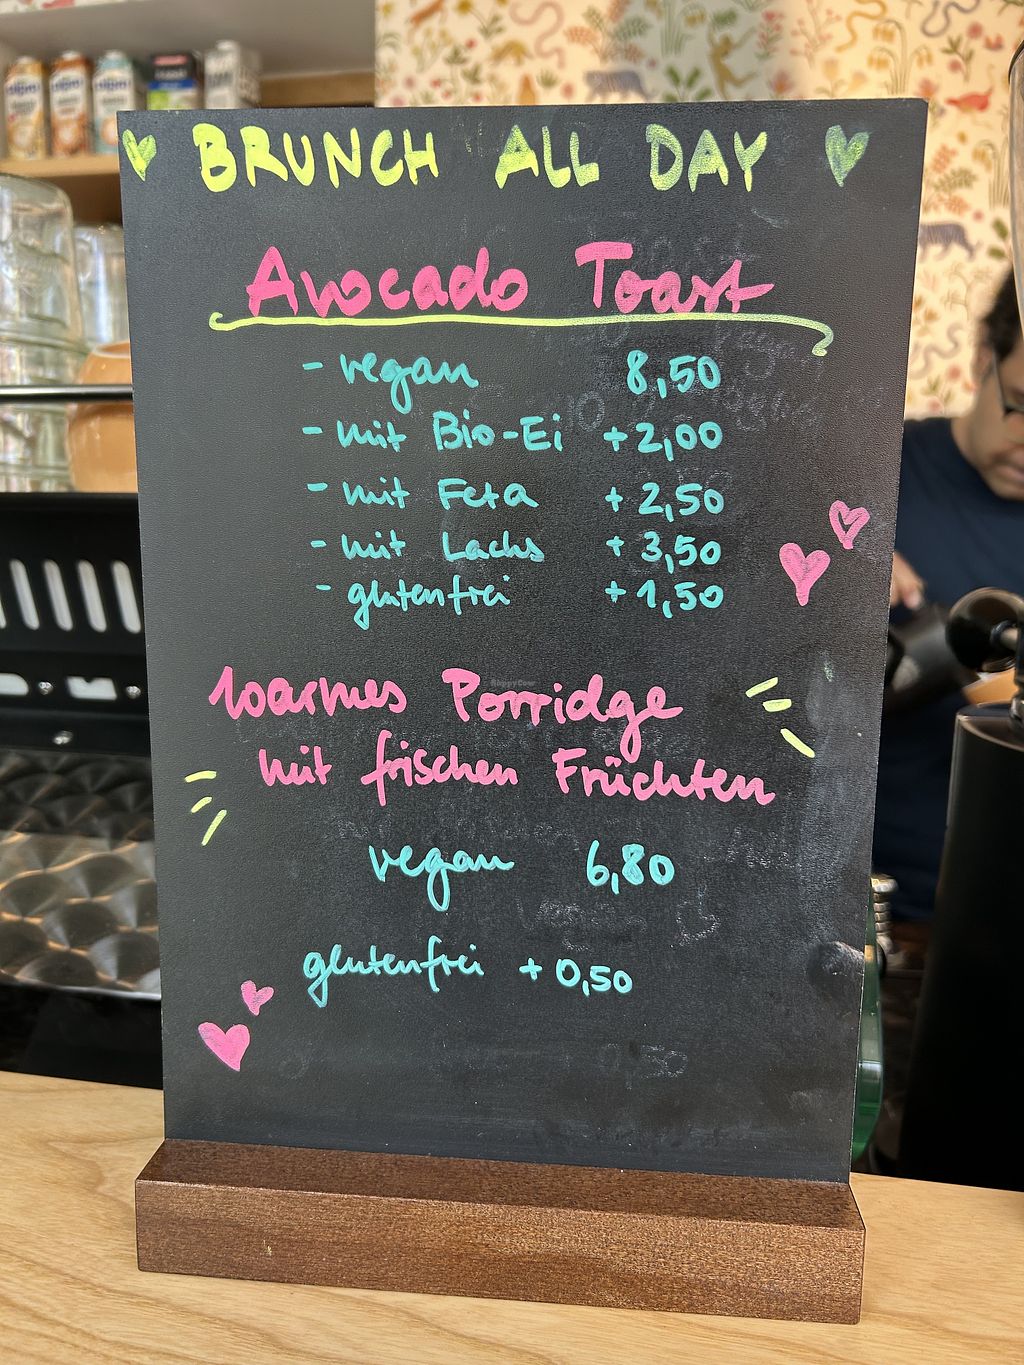 BRUNCH ALL DAY
Avocado Toast
- vegan 8,50
- mit Bio-Ei +2,00
- mit Feta +2,50
- mit Lachs +3,50
- glutenfrei +1,50
warmes Porridge
mit frischen Früchten
vegan 6,80
glutenfrei +0,50